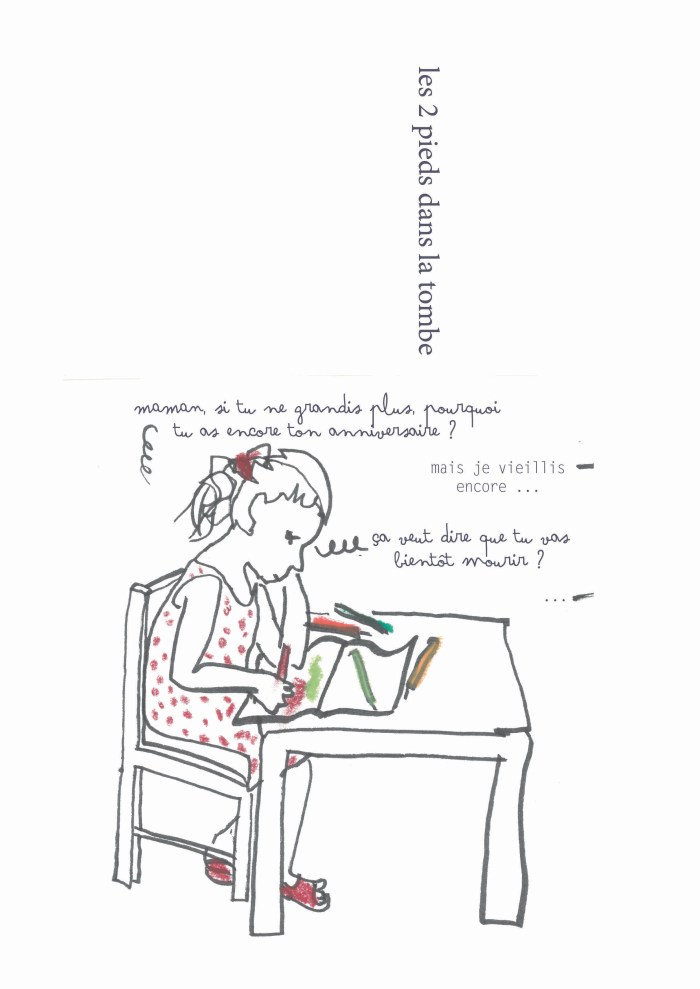 les 2 pieds dans la tombe
maman, si tu ne grandis plus, pourquoi
tu as encore ton anniversaire ?
mais je vieillis
encore ...
ça veut dire que tu vas
bientôt mourir ?
...